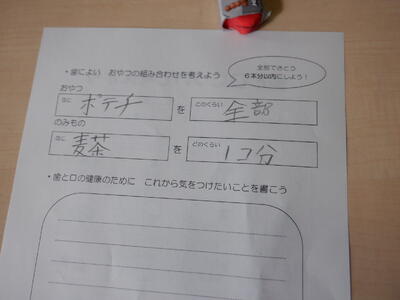 ・歯によい おやつの組み合わせを考えよう
全部でさとう
6本分以内にしよう！
おやつ
なに ポテチ を どのくらい 全部
のみもの
なに 麦茶 を どのくらい 1コ分
・歯と口の健康のために これから気をつけたいことを書こう